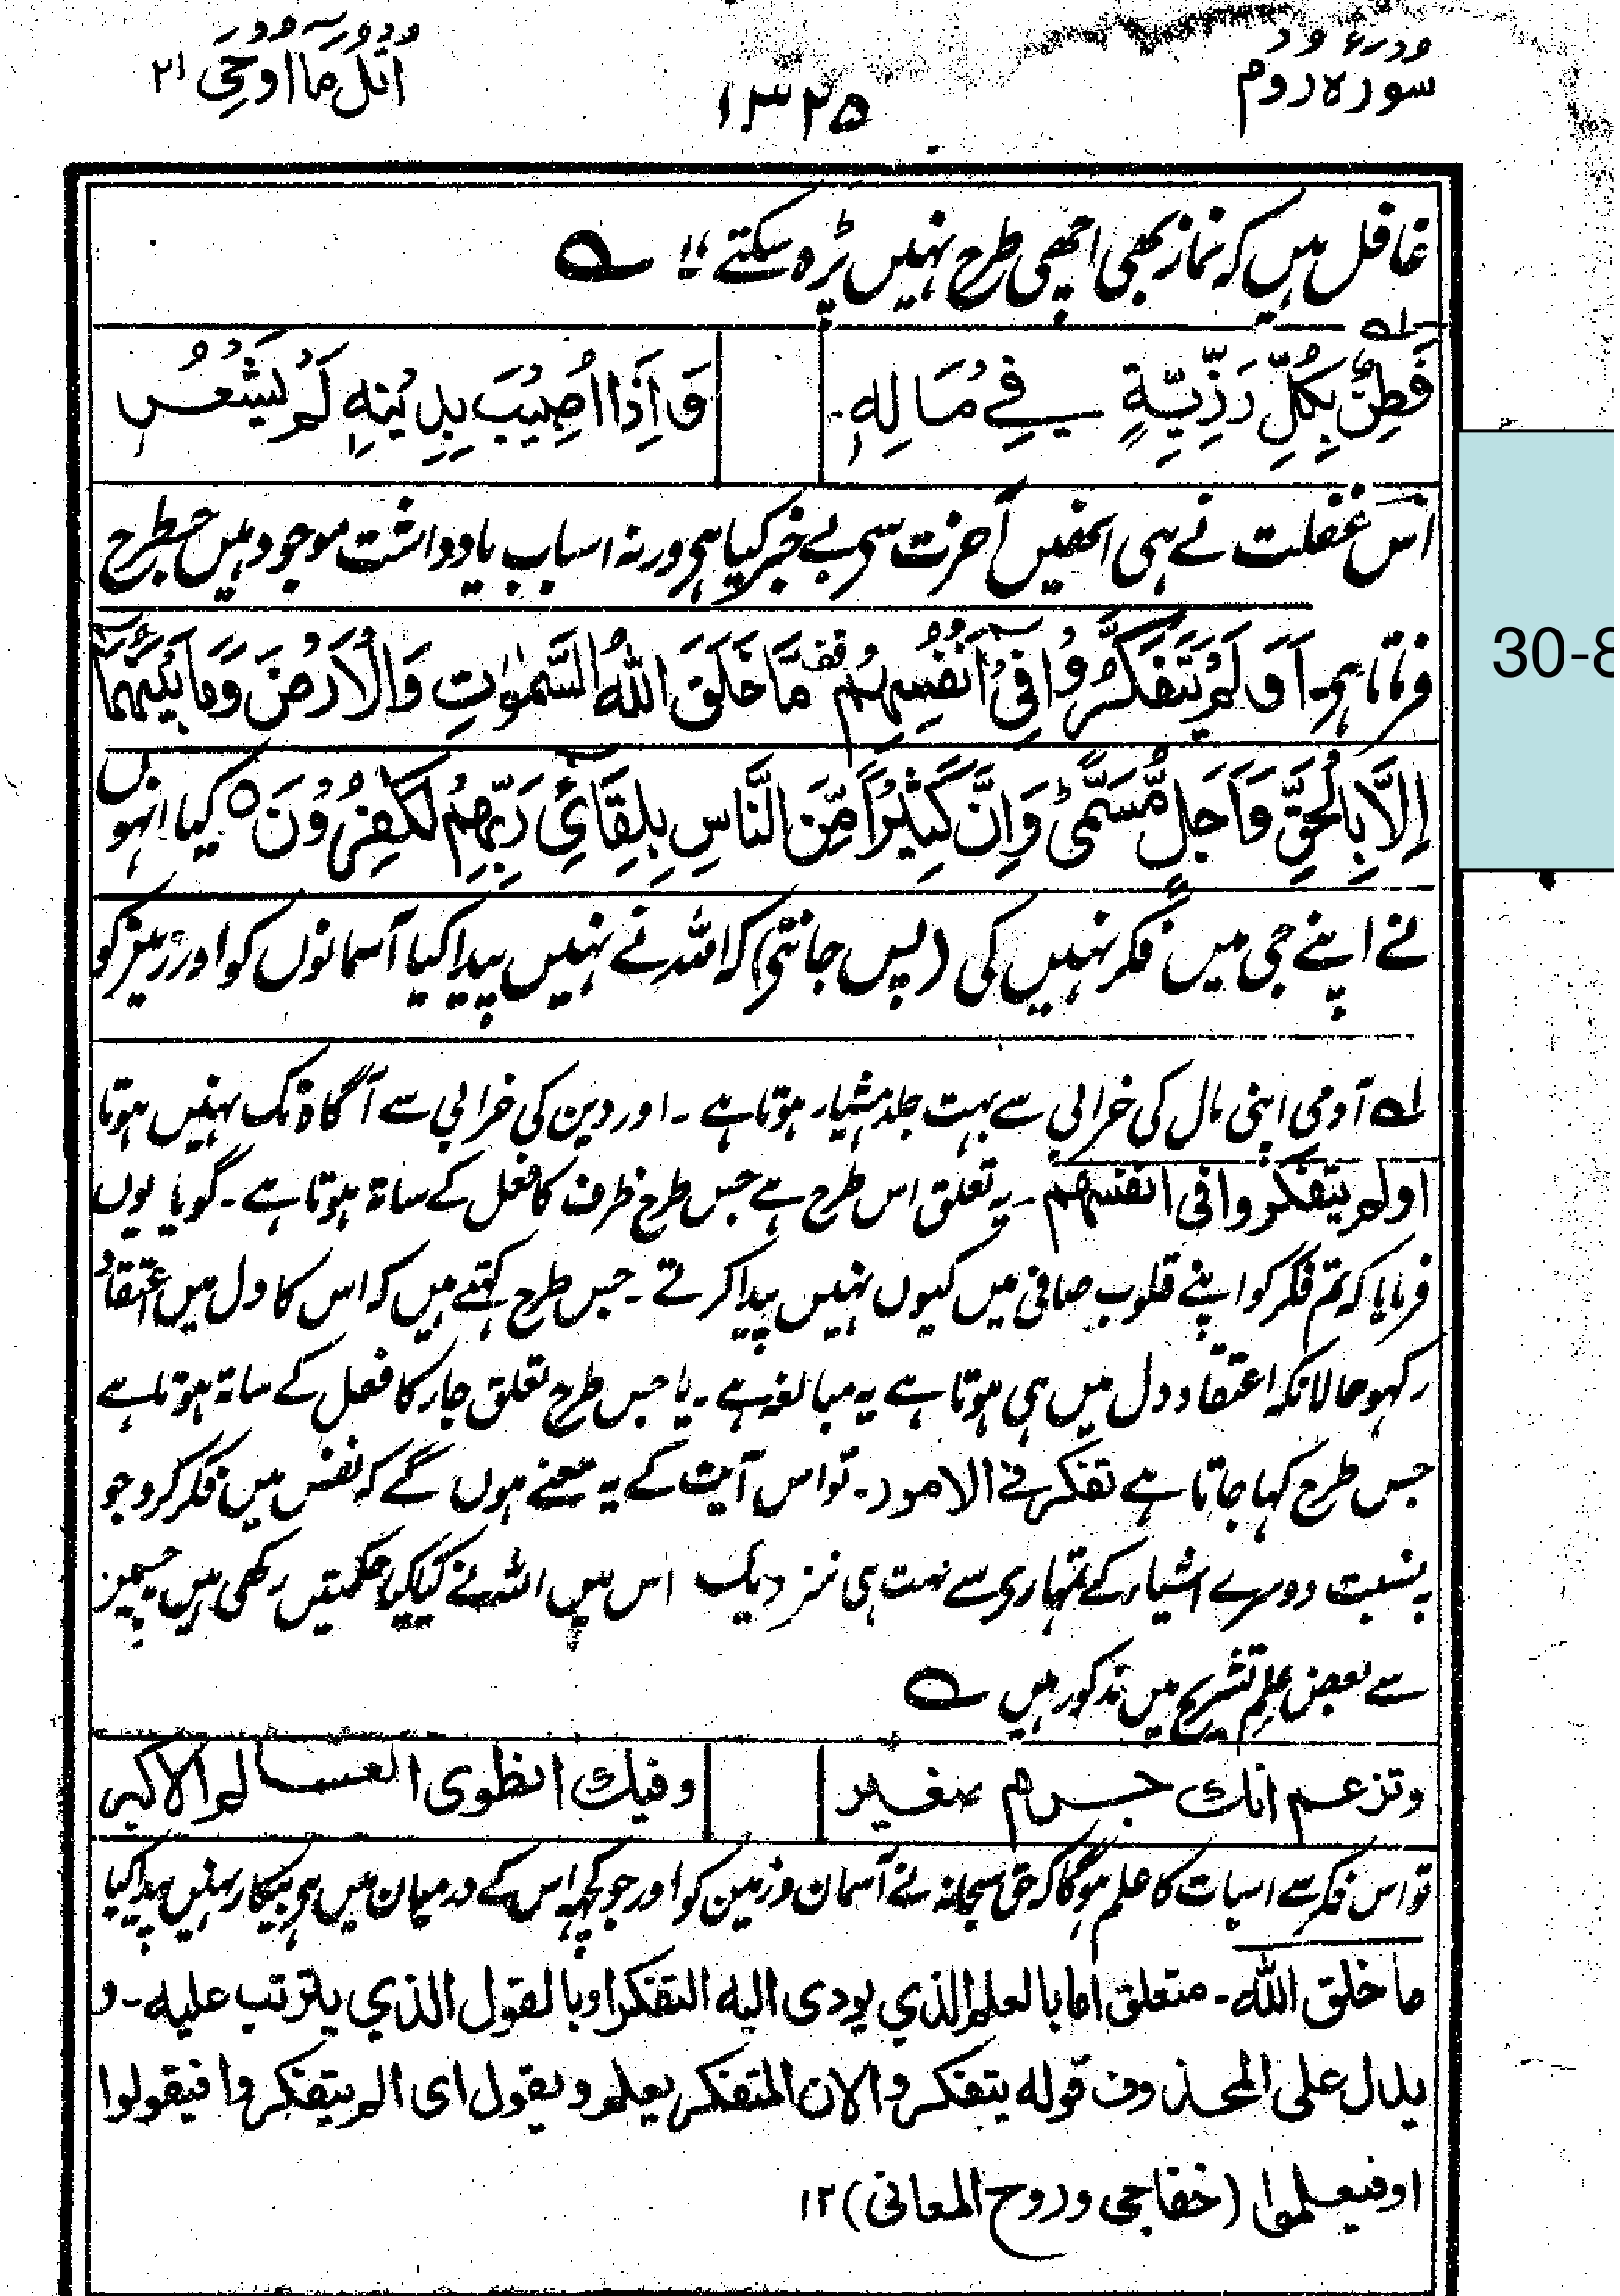 سورہ روم
۱۳۲۵
اتل ما اوحی ۲۱
غافل ہیں کہ نماز بھی اچھی طرح نہیں پڑہ سکتے !!
فَطِنٌ بِكُلِّ رَذِيَّةٍ فِي مَالِهٖ - وَاِذَا اُصِيْبَ بِدِيْنِهٖ لَمْ يَشْعُرٖ
اس غفلت نے ہی انھیں آخرت سی بے خبر کیا ہی ورنہ اسباب یادداشت موجود ہیں جسطرح
فرماتا ہی۔ اَوَلَمْ يَتَفَكَّرُوْا فِيْٓ اَنْفُسِهِمْ قف مَّا خَلَقَ اللّٰهُ السَّمٰوٰتِ وَالْاَرْضَ وَمَا بَيْنَهُمَآ
اِلَّا بِالْحَقِّ وَاَجَلٍ مُّسَمًّى ط وَاِنَّ كَثِيْرًا مِّنَ النَّاسِ بِلِقَآئِ رَبِّهِمْ لَكٰفِرُوْنَ ہ کیا انہوں
30-8
نے اپنے جی میں فکر نہیں کی (پس جانتی) کہ اللہ نے نہیں پیدا کیا آسمانوں کو اور زمین کو
لہ آدمی اپنی مال کی خرابی سے بہت جلد ہشیار ہوتا ہے ۔ اور دین کی خرابی سے آگاہ تک نہیں ہوتا
اولم یتفکروا فی انفسھم ۔ یہ تعلق اس طرح ہے جس طرح ظرف کا فعل کے ساتہ ہوتا ہے ۔ گویا یوں
فرمایا کہ تم فکر کو اپنے قلوب صافی میں کیوں نہیں پیدا کرتے ۔ جس طرح کہتے ہیں کہ اس کا دل میں اعتقاد
رکہو حالانکہ اعتقاد دل میں ہی ہوتا ہے یہ مبالغہ ہے ۔ یا جس طرح تعلق جار کا فعل کے ساتہ ہوتا ہے
جس طرح کہا جاتا ہے تفکر فی الامور ۔ تو اس آیت کے یہ معنے ہوں گے کہ نفس میں فکر کرو جو
بہ نسبت دوسرے اشیاء کے تمہاری سے بہت ہی نزدیک اس میں اللہ نے کیا کیا حکمتیں رکھی ہیں جسمیں
سے بعض علم تشریح میں مذکور ہیں
وتزعم انك جرم صغير وفيك انطوى العالم الاكبر
تو اس فکر سے اسبات کا علم ہوگا کہ حق سبحانہ نے آسمان و زمین کو اور جو کچہہ اس کے درمیان میں ہی بیکار نہیں پیدا کیا
ما خلق الله ۔ متعلق اما بالعلم الذي يودى اليه التفكر او بالقول الذي يترتب عليه ۔ و
يدل على المحذوف قوله يتفكروا لان المتفكر يعلم ويقول اى الم يتفكروا فيقولوا
او فيعلموا (خفاجى وروح المعانى) ۱۲